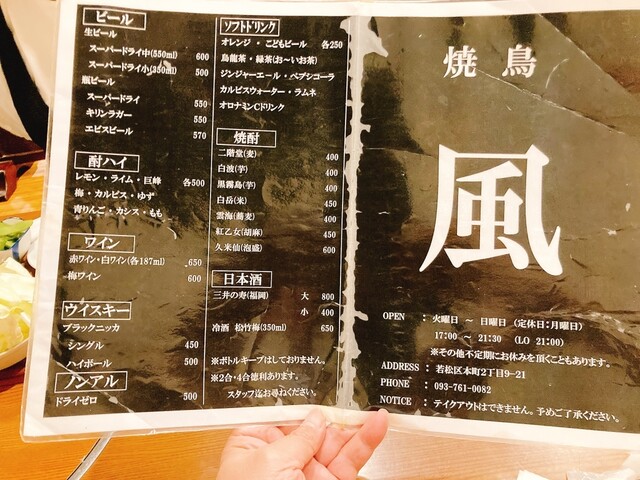 ビール
生ビール
スーパードライ中(550ml) 600
スーパードライ小(350ml) 500
瓶ビール
スーパードライ 550
キリンラガー 550
エビスビール 570
酎ハイ
レモン・ライム・巨峰 各500
梅・カルピス・ゆず
青りんご・カシス・もも
ワイン
赤ワイン・白ワイン(各187ml) 650
梅ワイン 600
ウイスキー
ブラックニッカ
シングル 450
ハイボール 500
ノンアル
ドライゼロ 500
ソフトドリンク
オレンジ・こどもビール 各250
烏龍茶・緑茶(お〜いお茶)
ジンジャーエール・ペプシコーラ
カルピスウォーター・ラムネ
オロナミンCドリンク
焼酎
二階堂(麦) 400
白波(芋) 400
黒霧島(芋) 400
白岳(米) 450
雲海(蕎麦) 400
紅乙女(胡麻) 450
久米仙(泡盛) 600
日本酒
三井の寿(福岡) 大 800
小 400
冷酒 松竹梅(350ml) 650
※ボトルキープはしておりません。
※2合・4合徳利あります。
スタッフ迄お尋ねください。
焼鳥
風
OPEN : 火曜日 〜 日曜日 (定休日:月曜日)
17:00 〜 21:30 (LO 21:00)
※その他不定期にお休みを頂くこともあります。
ADDRESS : 若松区本町2丁目9-21
PHONE : 093-761-0082
NOTICE : テイクアウトはできません。予めご了承ください。